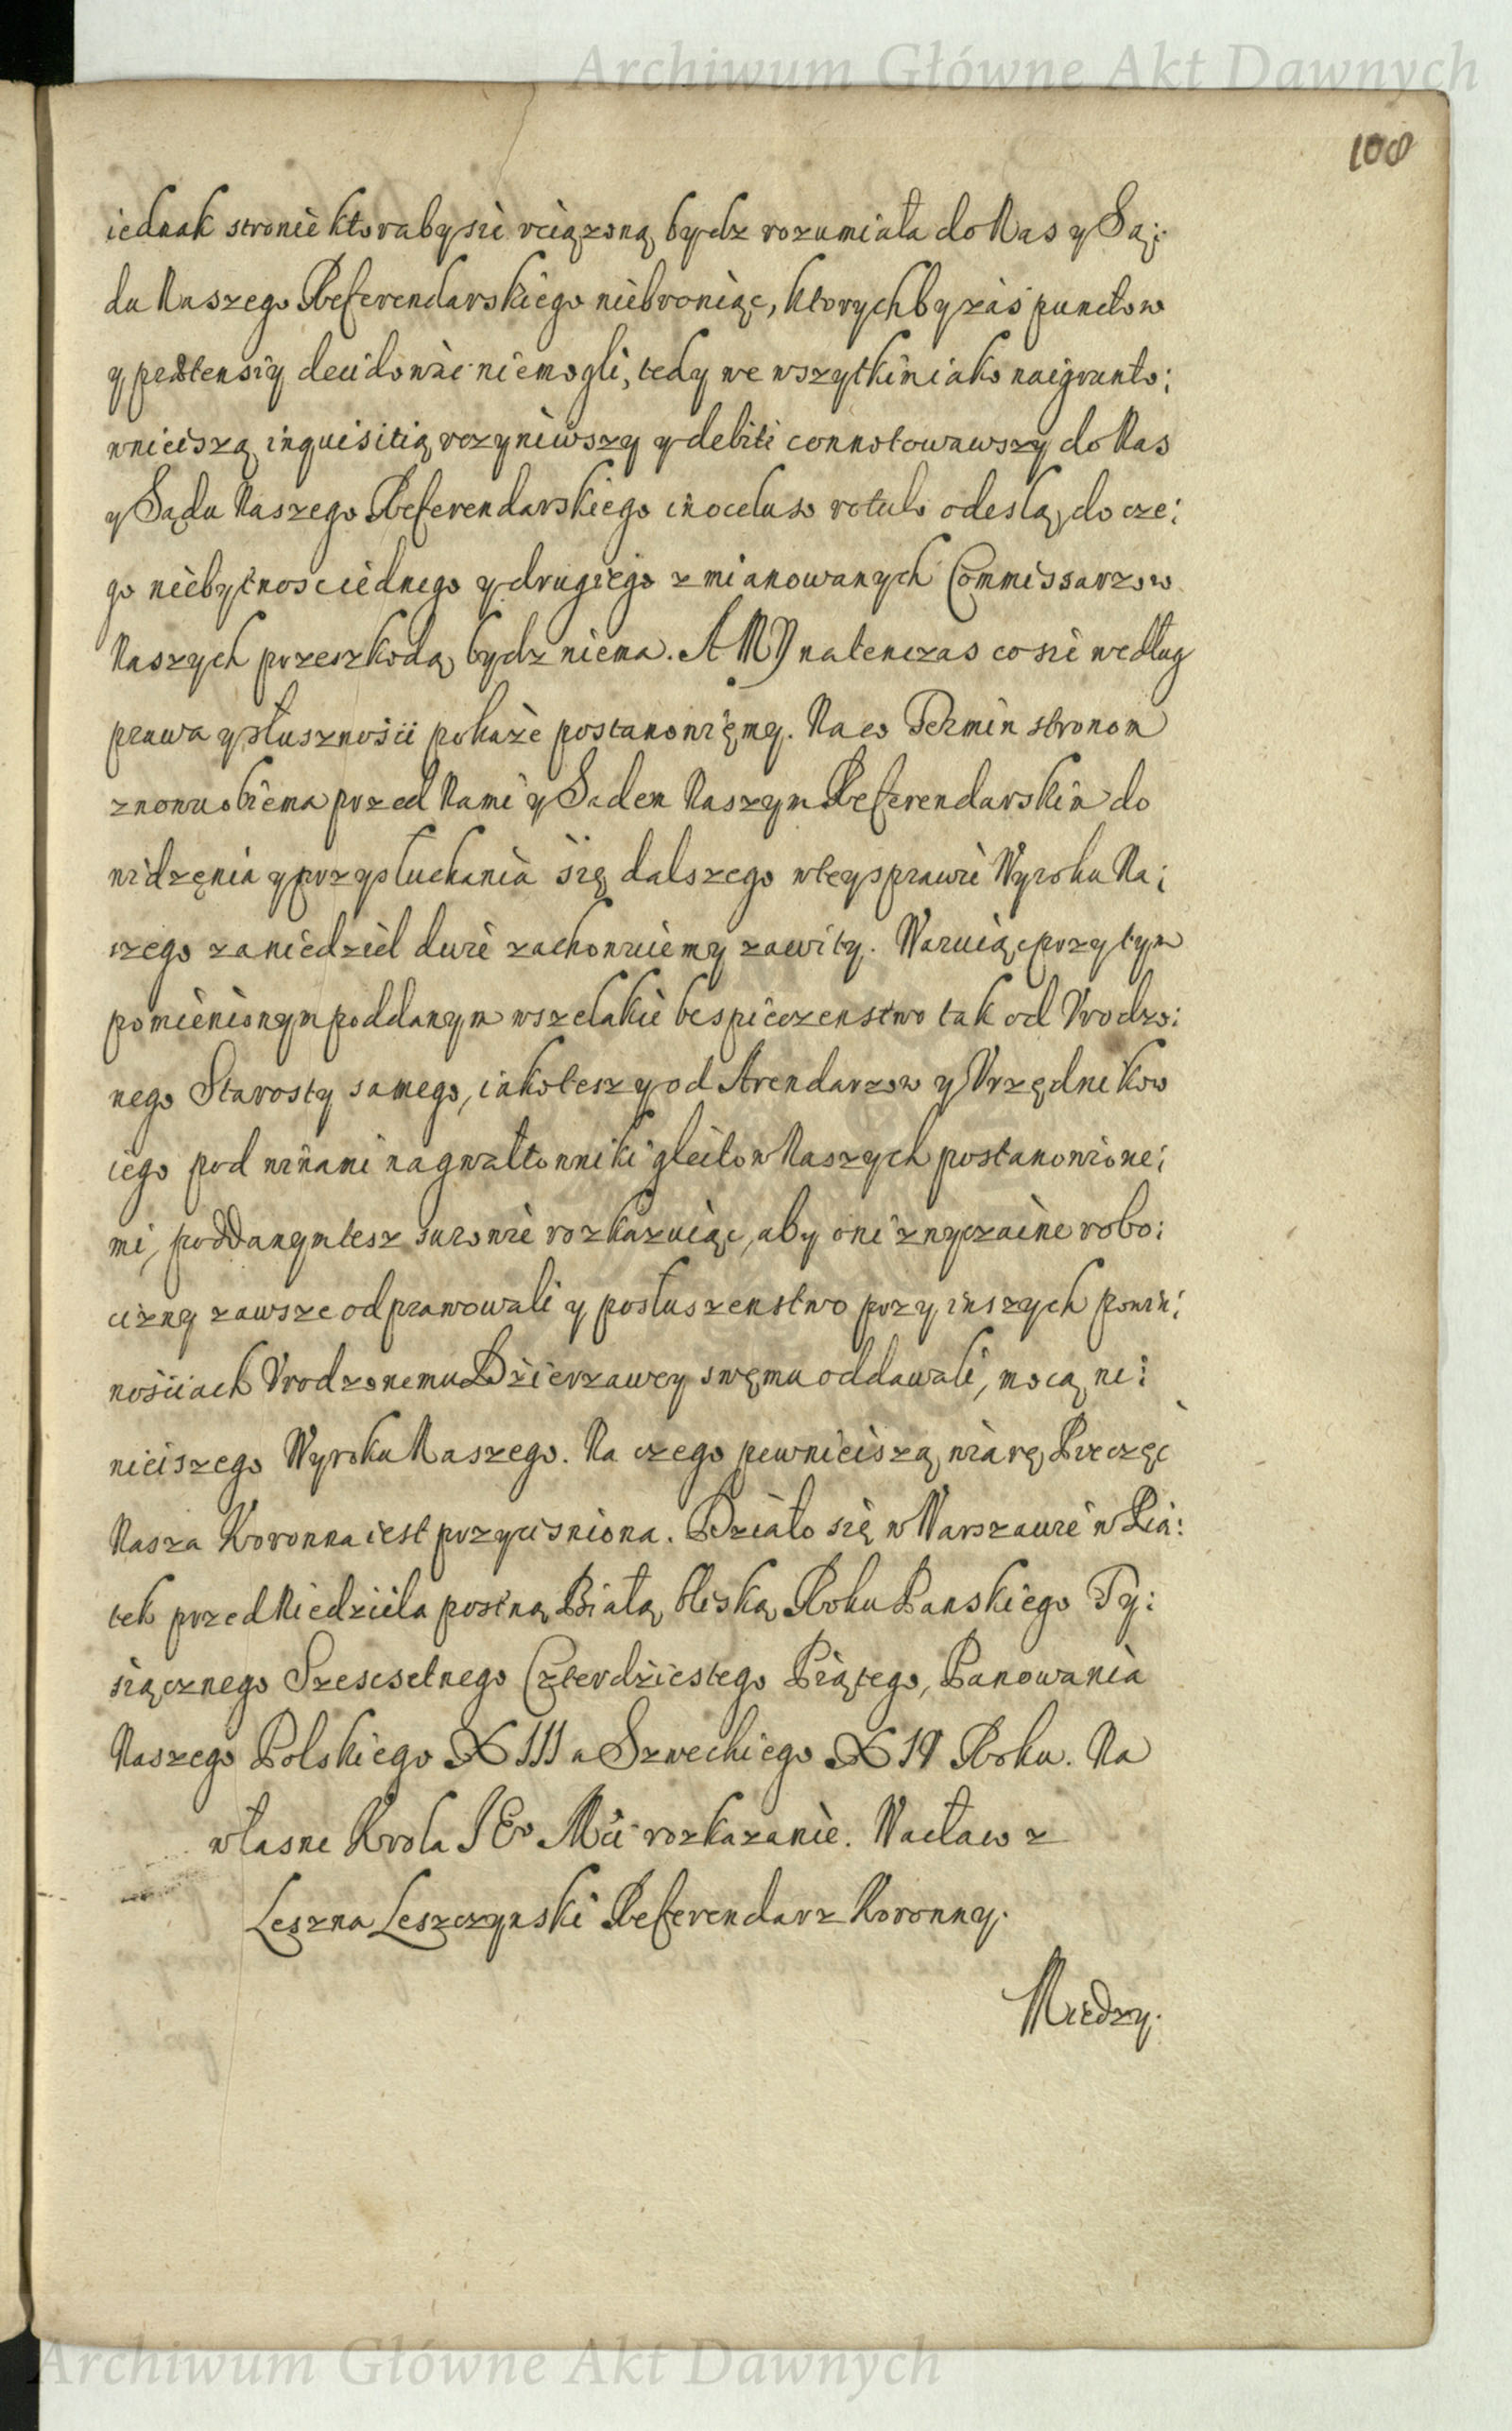 Archiwum Główne Akt Dawnych
108
iednak stronie ktoraby sie vciązoną bydz rozumiała do Nas y Są:
du Naszego Referendarskiego niebroniąc, ktorychby zas punctow
y praetensiy decidowac niemogli, tedy we wszytkim iako naigrunto:
wnieiszą inquisitią vczyniwszy y debite connotowawszy do Nas
y Sądu Naszego Referendarskiego in ocluso rotulo odeslą, do cze:
go niebytnosc iednego y drugiego z mianowanych Commissarzow
Naszych przeszkodą bydz niema. A MY natenczas co sie według
prawa y słusznosci pokaże postanowięmy. Na co Termin stronom
znowu obiema przed Nami y Sadem Naszym Referendarskim do
widzęnia y przysłuchania się dalszego w tey sprawie Wyroku Na:
szego za niedziel dwie zachowuiemy zawity. Waruiąc przy tym
pomienionym poddanym wszelakie bespieczenstwo tak od Vrodzo:
nego Starosty samego, iako tesz y od Arendarzow y Vrzędnikow
iego pod winami na gwałtowniki gleitow Naszych postanowione:
mi, poddanym tesz surowie rozkazuiąc, aby oni zwyczaine robo:
cizny zawsze odprawowali y posłuszenstwo przy inszych powin:
nościach Vrodzonemu Dzierzawcy swęmu oddawali, mocą ni:
nieiszego Wyroku Naszego. Na czego pewnieiszą wiarę Pieczęc
Nasza Koronna iest przycisniona. Działo się w Warszawie w Pią:
tek przed Niedziela postną Białą bliską Roku Panskiego Ty:
siącznego Szescsetnego Czterdziestego Piątego, Panowania
Naszego Polskiego XIII a Szwedkiego XIV Roku. Na
własne Krola JEo Mci rozkazanie. Wacław z
Leszna Leszczynski Referendarz Koronny.
Miedzy.
Archiwum Główne Akt Dawnych